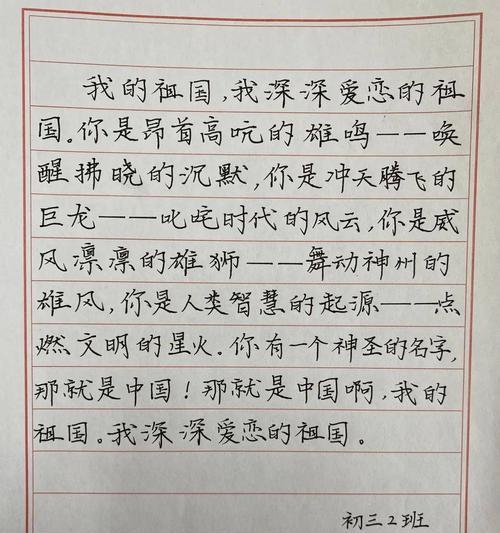 我的祖国,我深深爱恋的祖
国。你是昂首高吭的雄鸣——唤
醒拂晓的沉默,你是冲天腾飞的
巨龙——叱咤时代的风云,你是威
风凛凛的雄狮——舞动神州的
雄风,你是人类智慧的起源——点
燃文明的星火。你有一个神圣的名字,
那就是中国!那就是中国啊,我的
祖国。我深深爱恋的祖国。
初三2班